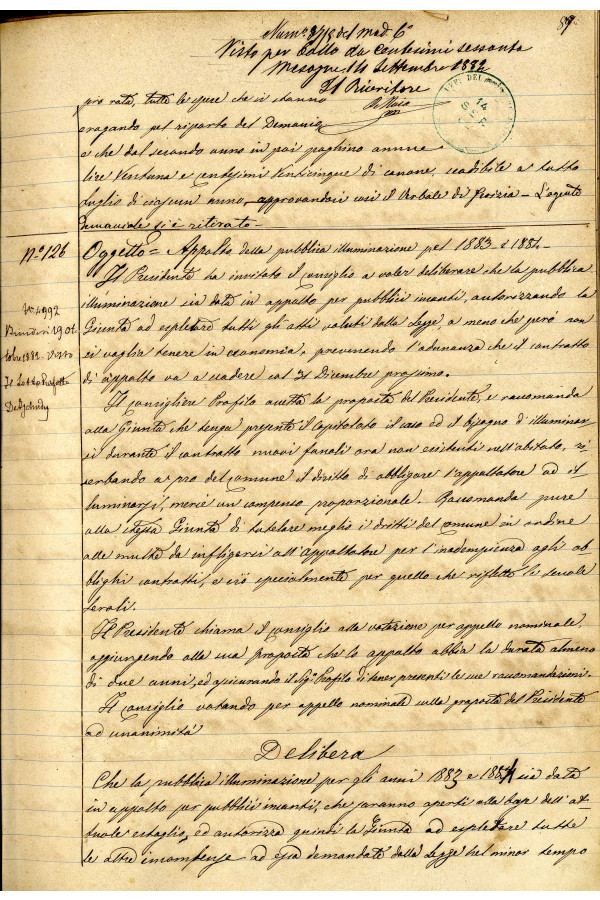 89
Num.° 818 del mod. 6°
Visto per bollo da centesimi sessanta
Mesagne 14 Settembre 1882
Il Ricevitore
14
SET
pro rata, tutte le spese che si stanno
erogando pel riparto del Demanio
e che dal secondo anno in poi paghino annue
lire ventuna e centesimi venticinque di canone, scadibile a tutto
luglio di ciascun anno, approvandosi così il Verbale di Perizia — L'agente
demaniale si è ritirato —
N° 126
Oggetto = Appalto della pubblica illuminazione pel 1883 e 1884 —
Il Presidente ha invitato il Consiglio a voler deliberare che la pubblica
illuminazione sia data in appalto per pubblici incanti, autorizzando la
Giunta ad espletare tutti gli atti voluti dalla Legge, a meno che però non
si voglia tenere in economia, prevenendo l'adunanza che il contratto
di appalto va a scadere col 31 Dicembre prossimo.
N° 4992
Brindisi 19 Ot
tobre 1882 Visto
Il Sotto Prefetto
Il Consigliere Profilo accetta la proposta del Presidente, e raccomanda
alla Giunta che tenga presente il Capitolato il caso ed il bisogno d'illuminar
si durante il contratto nuovi fanali ora non esistenti nell'abitato, ri
serbando a pro del Comune il diritto di obbligare l'appaltatore ad il
luminarsi, mercé un compenso proporzionale. Raccomanda pure
alla stessa Giunta di tutelare meglio i dritti del Comune in ordine
alle multe da infligersi all'appaltatore per l'inadempienza agli ob
blighi contratti, e ciò specialmente per quello che rifletto le scuole
serali.
Il Presidente chiama il Consiglio alla votazione per appello nominale,
aggiungendo alla sua proposta che lo appalto abbia la durata almeno
di due anni, ed assicurando il Sig.r Profilo di tener presenti le sue raccomandazioni.
Il Consiglio votando per appello nominale sulla proposta del Presidente
ad unanimità
Delibera
Che la pubblica illuminazione per gli anni 1883 e 1884 sia data
in appalto per pubblici incanti, che saranno aperti alla base dell'at
tuale estaglio, ed autorizza quindi la Giunta ad espletare tutte
le altre incombenze ad essa demandate dalla Legge nel minor tempo